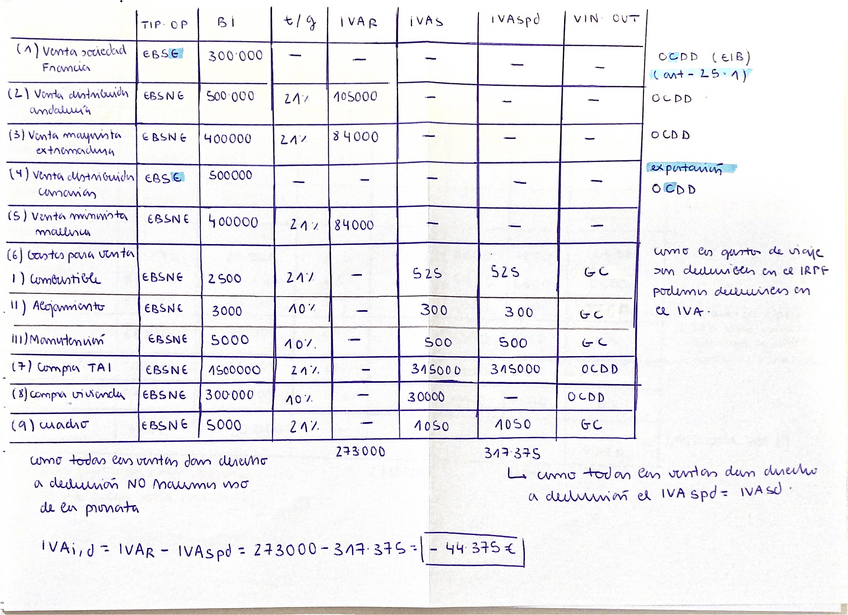 TIP. OP BI t/g IVAR IVAS IVASpd VIN. OUT
(1) Venta sociedad Francia EBSE 300'000 — — — — — OCDD (EIB) (art-25.1)
(2) Venta distribuida andalucía EBSNE 500'000 21% 105000 — — — OCDD
(3) Venta mayorista extremadura EBSNE 400000 21% 84000 — — — OCDD
(4) Venta distribuida canarias EBSE 500000 — — — — — exportación OCDD
(5) Venta minorista mallorca EBSNE 400000 21% 84000 — — —
(6) Gastos para venta
I) Combustible EBSNE 2500 21% — 525 525 GC
II) Alojamiento EBSNE 3000 10% — 300 300 GC
III) Manutención EBSNE 5000 10% — 500 500 GC
como los gastos de viaje
son deducibles en el IRPF
podemos deducirlos en
el IVA.
(7) Compra TAI EBSNE 1500000 21% — 315000 315000 OCDD
(8) Compra vivienda EBSNE 300'000 10% — 30000 — OCDD
(9) Cuadro EBSNE 5000 21% — 1050 1050 GC
273000 317'375
como todas las ventas dan derecho
a deducción NO hacemos uso
de la prorrata
↳ como todas las ventas dan derecho
a deducción el IVASpd = IVASd.
IVAi,d = IVAR - IVASpd = 273000 - 317'375 = - 44'375 €